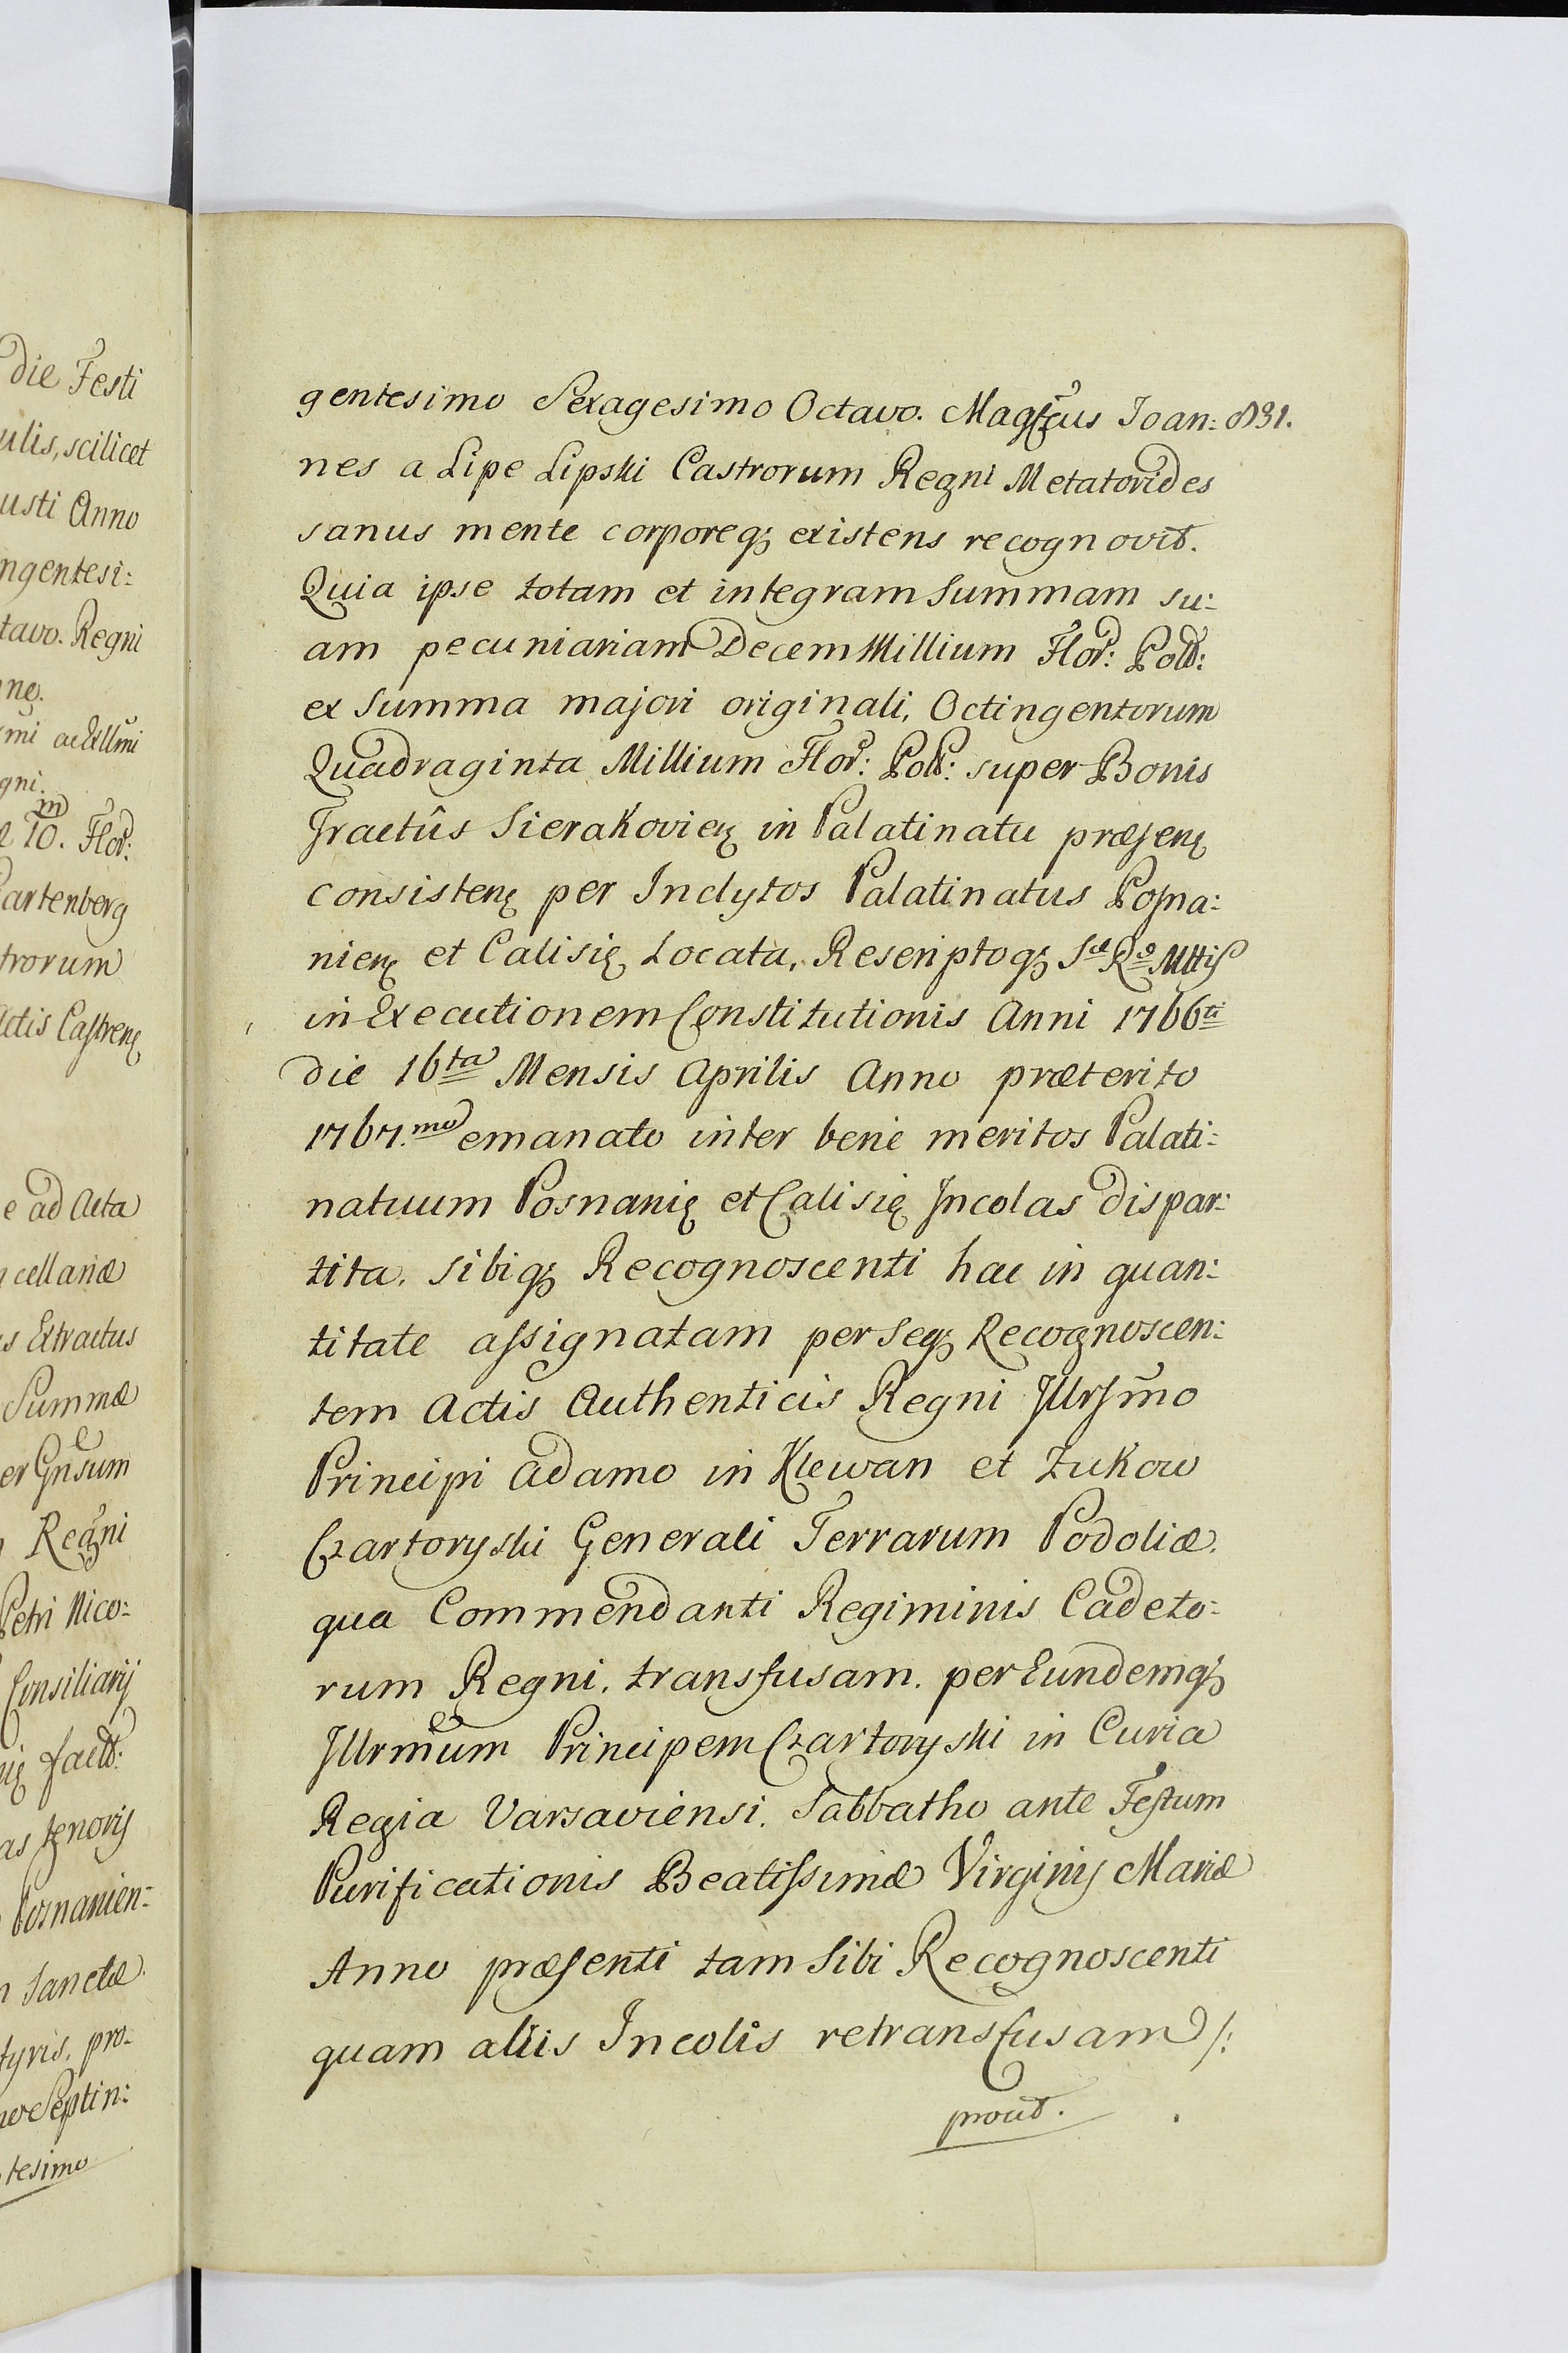 die Festi
ulis, scilicet
usti Anno
ngentesi:
tavo. Regni
mi ac Illmi
gni.
10.m Flor:
artenberg
trorum
Actis Castren
e ad Acta
cellariæ
s Extractus
Summæ
er Gnsum
Regni
Petri Nico:
Consiliarij
as tenoris
Posnanien:
Sanctæ
tyris, pro-
Septin:
tesimo
gentesimo Sexagesimo Octavo. Magfcus Joan: 831.
nes a Lipe Lipski Castrorum Regni Metatorides
sanus mente corporeq; existens recognovit.
Quia ipse totam et integram Summam su:
am pecuniariam Decem Millium Flor: Pol:
ex Summa majori originali, Octingentorum
Quadraginta Millium Flor: Pol: super Bonis
Tractûs Sierakovien in Palatinatu præsen
consisten per Inclytos Palatinatus Posna:
nien et Calisię Locata, Rescriptoq; Sæ Ræ Mttis
in Executionem Constitutionis Anni 1766ti
die 16ta Mensis Aprilis Anno præterito
1767.mo emanato inter bene meritos Palati:
natuum Posnanię et Calisię Incolas dispar:
tita, sibiq; Recognoscenti hac in quan:
titate assignatam per Seq; Recognoscen:
tem Actis Authenticis Regni Illrsmo
Principi Adamo in Klewan et Zukow
Czartoryski Generali Terrarum Podoliæ,
qua Commendanti Regiminis Cadeto:
rum Regni, transfusam, per Eundemq;
Illrmum Principem Czartoryski in Curia
Regia Varsaviensi, Sabbatho ante Festum
Purificationis Beatissimæ Virginis Mariæ
Anno præsenti tam Sibi Recognoscenti
quam aliis Incolis retransfusam /:
prout.